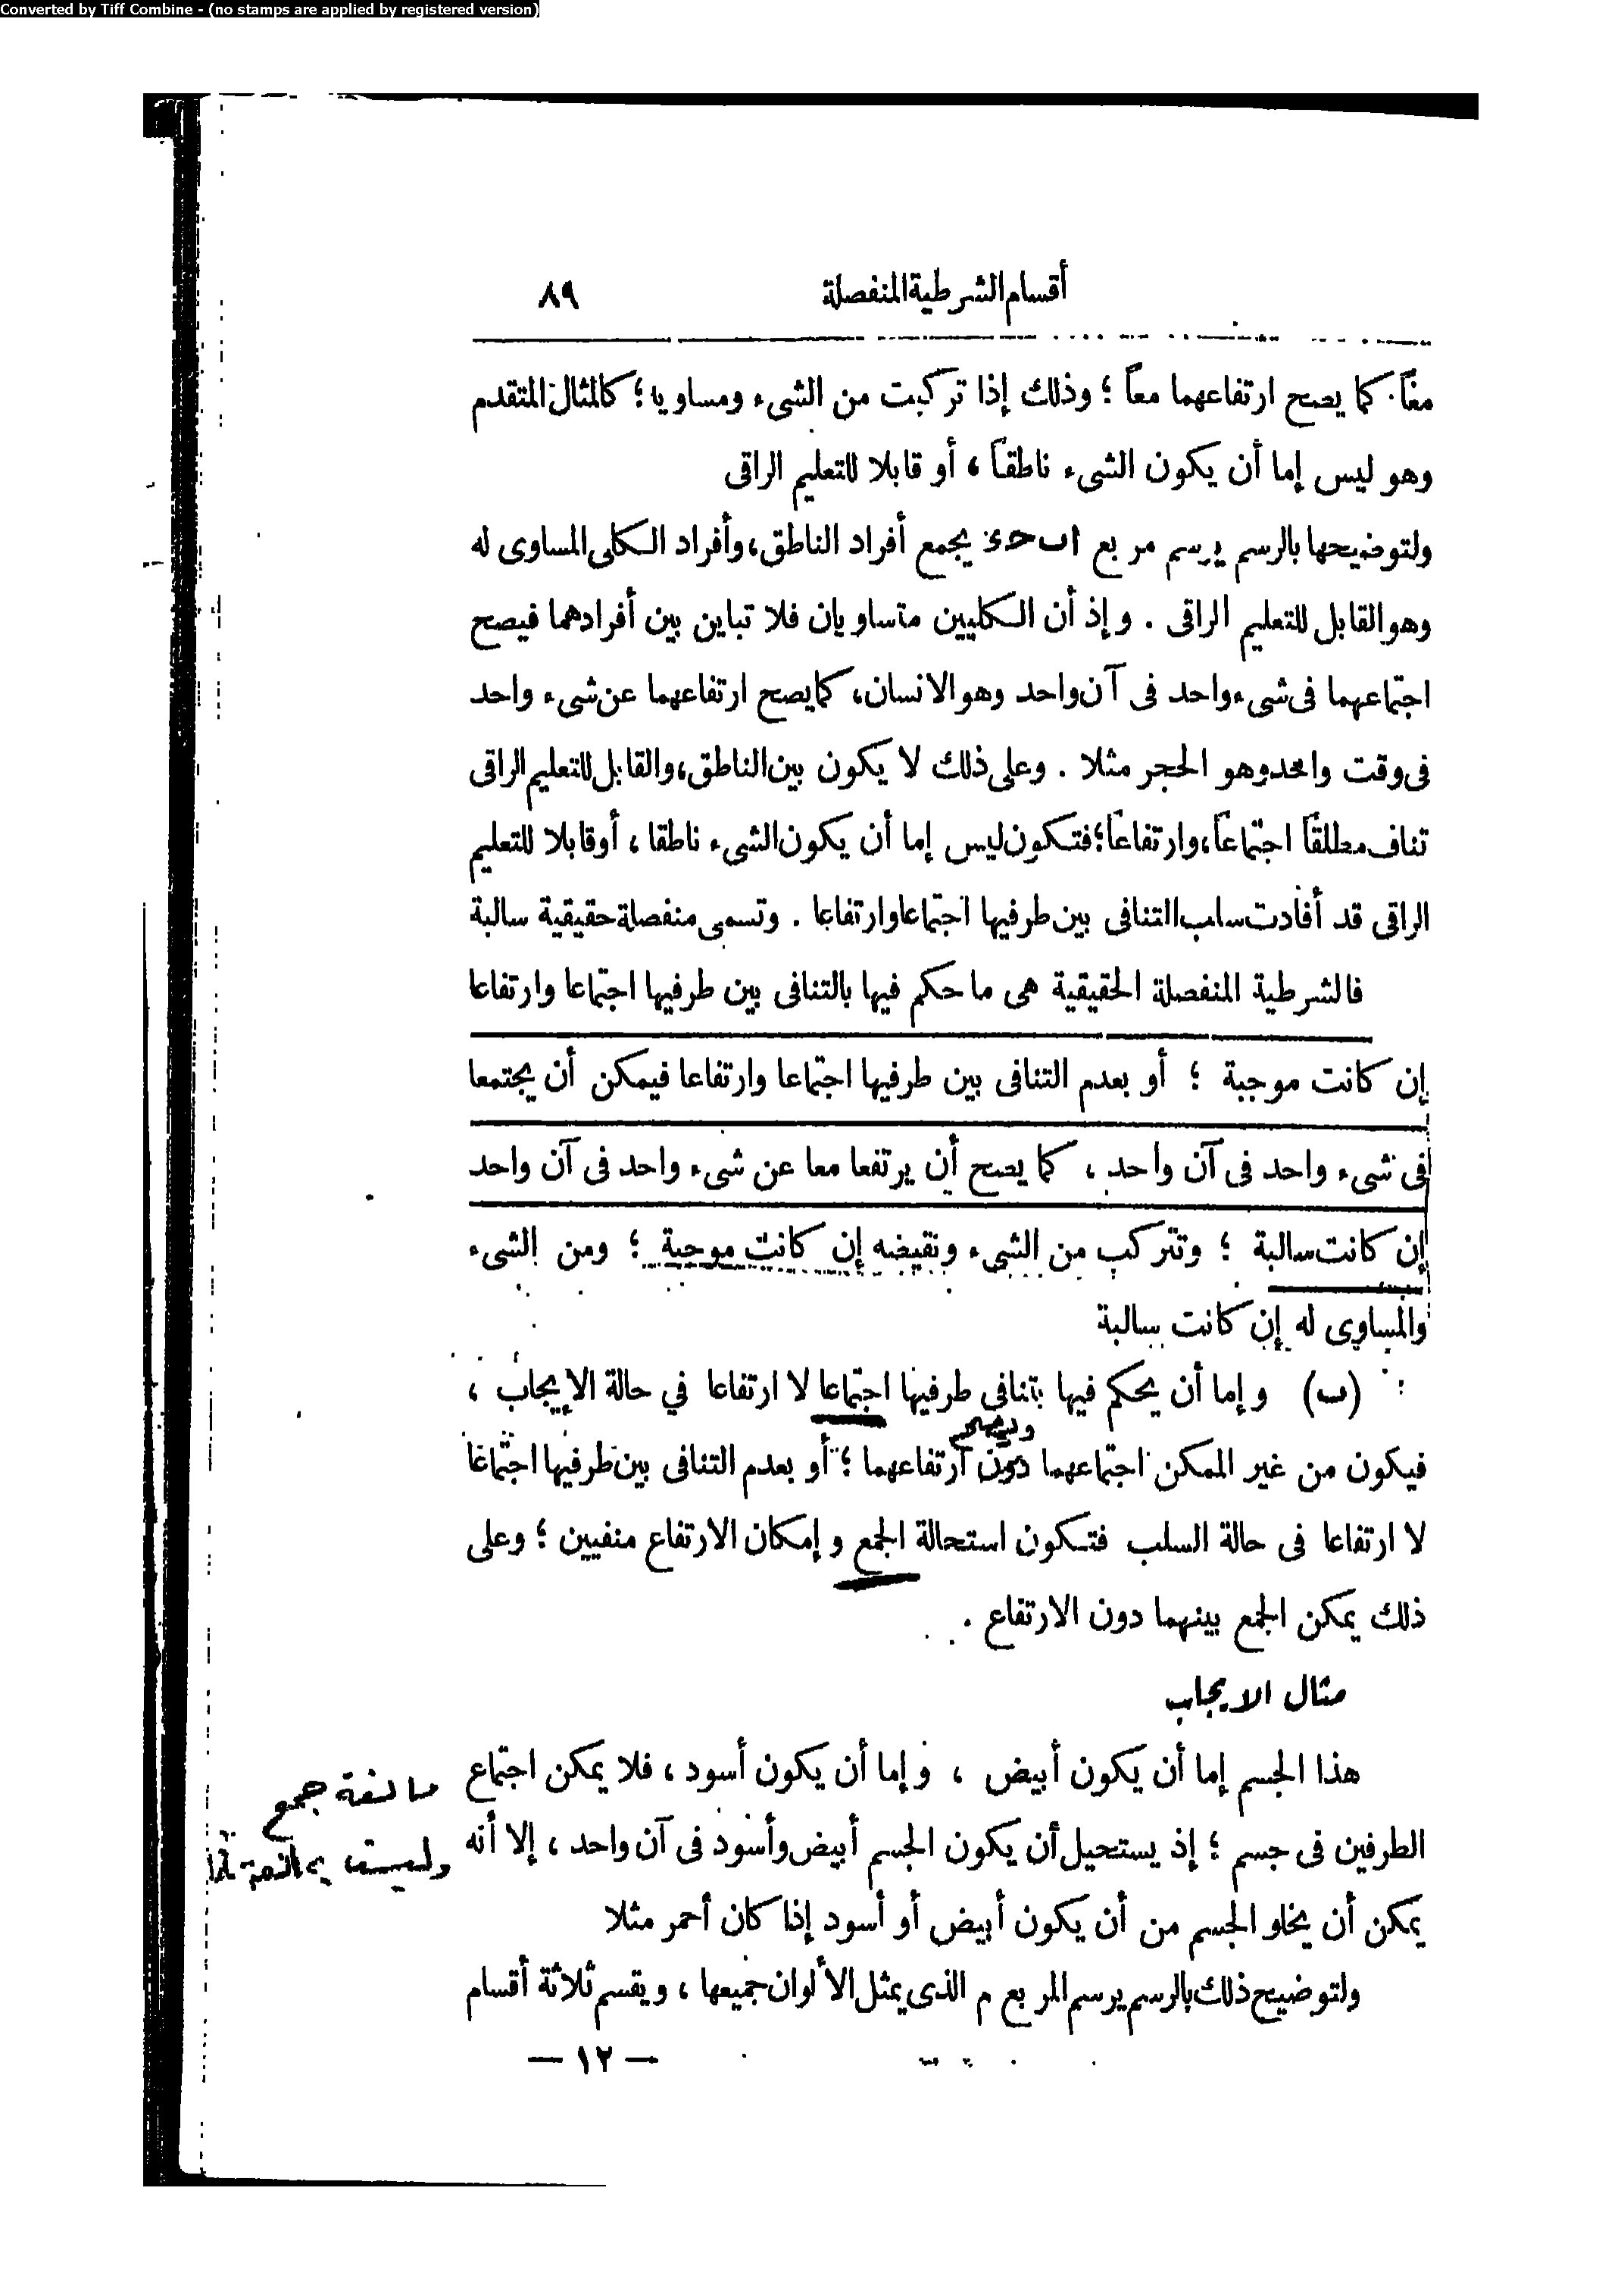 Converted by Tiff Combine - (no stamps are applied by registered version)
أقسام الشرطية المنفصلة ٨٩
معاً. كما يصح ارتفاعهما معاً ؛ وذلك إذا تركبت من الشىء ومساويا ؛ كالمثال المتقدم
وهو ليس إما أن يكون الشىء ناطقاً ، أو قابلا للتعليم الراقى
ولتوضيحها بالرسم يرسم مربع ا ب ح د يجمع أفراد الناطق، وأفراد الكلى المساوى له
وهو القابل للتعليم الراقى . وإذ أن الكليين متساويان فلا تباين بين أفرادهما فيصح
اجتماعهما فى شىء واحد فى آن واحد وهو الانسان، كما يصح ارتفاعهما عن شىء واحد
فى وقت واحد وهو الحجر مثلا . وعلى ذلك لا يكون بين الناطق، والقابل للتعليم الراقى
تناف مطلقاً اجتماعاً، وارتفاعاً؛ فتكون ليس إما أن يكون الشىء ناطقا ، أو قابلا للتعليم
الراقى قد أفادت سلب التنافى بين طرفيها اجتماعا وارتفاعا . وتسمى منفصلة حقيقية سالبة
فالشرطية المنفصلة الحقيقية هى ما حكم فيها بالتنافى بين طرفيها اجتماعا وارتفاعا
إن كانت موجبة ؛ أو بعدم التنافى بين طرفيها اجتماعا وارتفاعا فيمكن أن يجتمعا
فى شىء واحد فى آن واحد ، كما يصح أن يرتفعا معا عن شىء واحد فى آن واحد
إن كانت سالبة ؛ وتتركب من الشىء ونقيضه إن كانت موجبة ؛ ومن الشىء
والمساوى له إن كانت سالبة
(ب) وإما أن يحكم فيها بتنافى طرفيها اجتماعا لا ارتفاعا في حالة الإيجاب ،
ويصح
فيكون من غير الممكن اجتماعهما دون ارتفاعهما ؛ أو بعدم التنافى بين طرفيها اجتماعا
لا ارتفاعا فى حالة السلب فتكون استحالة الجمع وإمكان الارتفاع منفيين ؛ وعلى
ذلك يمكن الجمع بينهما دون الارتفاع .
مثال الايجاب
هذا الجسم إما أن يكون أبيض ، وإما أن يكون أسود ، فلا يمكن اجتماع
الطرفين فى جسم ؛ إذ يستحيل أن يكون الجسم أبيض وأسود فى آن واحد ، إلا أنه
يمكن أن يخلو الجسم من أن يكون أبيض أو أسود إذا كان أحمر مثلا
ولتوضيح ذلك بالرسم يرسم المربع م الذى يمثل الألوان جميعها ، ويقسم ثلاثة أقسام
مانعة جمع
وليست بمانعة
— ١٢ —